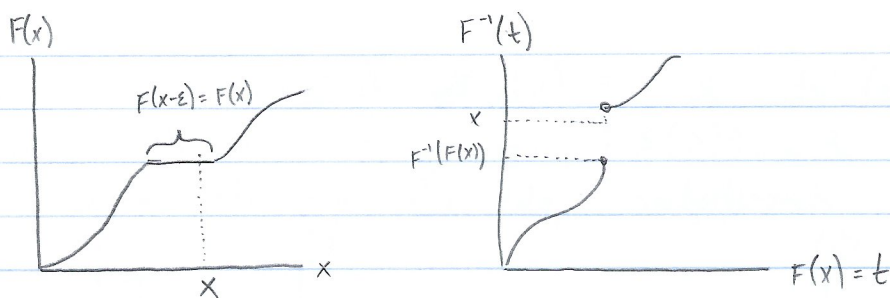 F(x)
F(x-ε) = F(x)
x
X
F⁻¹(t)
x
F⁻¹(F(x))
F(x) = t